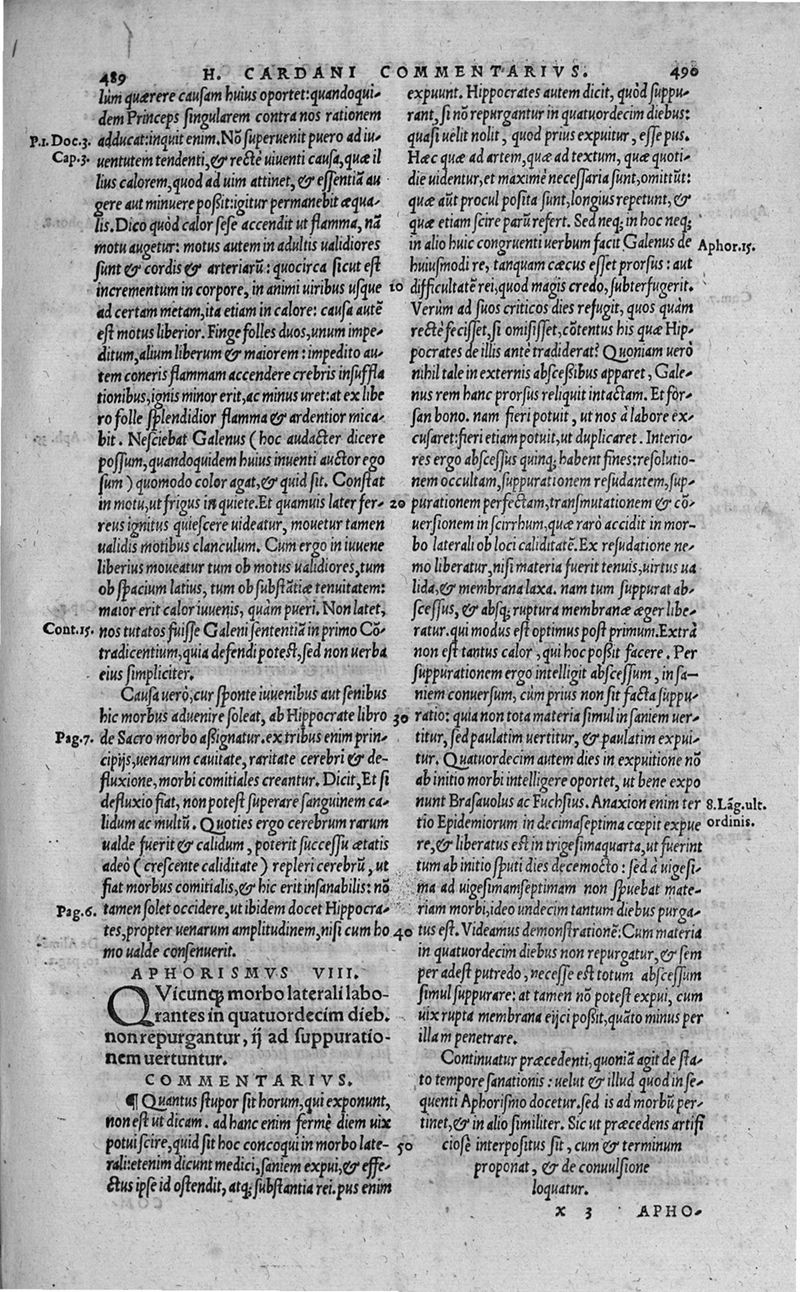 489 H. CARDANI COMMENTARIVS. 490
lùm quærere causam huius oportet: quandoqui-
dem Princeps singularem contra nos rationem
P.1. Doc.3. adducat: inquit enim. Nõ superuenit puero ad iu-
Cap.3. uentutem tendenti, & recte uiuenti causa, quæ il
lius calorem, quod ad uim attinet, & essentiã au
gere aut minuere possit: igitur permanebit æqua-
lis. Dico quòd calor sese accendit ut flamma, nã
motu augetur: motus autem in adultis ualidiores
sunt & cordis & arteriarũ: quocirca sicut est
incrementum in corpore, in animi uiribus usque
ad certam metam, ita etiam in calore: causa autẽ
est motus liberior. Finge folles duos, unum impe-
ditum, alium liberum & maiorem: impedito au-
tem coneris flammam accendere crebris insuffla
tionibus, ignis minor erit, ac minus uret: at ex libe
ro folle splendidior flamma & ardentior mica-
bit. Nesciebat Galenus (hoc audacter dicere
possum, quandoquidem huius inuenti auctor ego
sum) quomodo color agat, & quid sit. Constat
in motu, ut frigus in quiete. Et quamuis later fer-
reus ignitus quiescere uideatur, mouetur tamen
ualidis motibus clanculum. Cum ergo in iuuene
liberius moueatur tum ob motus ualidiores, tum
ob spacium latius, tum ob substãtiæ tenuitatem:
maior erit calor iuuenis, quàm pueri. Non latet,
Cont.15. nos tutatos fuisse Galeni sententiã in primo Cõ-
tradicentium, quia defendi potest, sed non uerba
eius simpliciter.
Causa uerò, cur sponte iuuenibus aut senibus
hic morbus aduenire soleat, ab Hippocrate libro
Pag.7. de Sacro morbo assignatur. ex tribus enim prin-
cipijs, uenarum cauitate, raritate cerebri & de-
fluxione, morbi comitiales creantur. Dicit, Et si
defluxio fiat, non potest superare sanguinem ca-
lidum ac multũ. Quoties ergo cerebrum rarum
ualde fuerit & calidum, poterit successu ætatis
adeò (crescente caliditate) repleri cerebrũ, ut
fiat morbus comitialis, & hic erit insanabilis: nõ
Pag.6. tamen solet occidere, ut ibidem docet Hippocra-
tes, propter uenarum amplitudinem, nisi cum ho
mo ualde consenuerit.
APHORISMVS VIII.
QVicunq; morbo laterali labo-
rantes in quatuordecim dieb.
non repurgantur, ij ad suppuratio-
nem uertuntur.
COMMENTARIVS.
¶ Quantus stupor sit horum, qui exponunt,
non est ut dicam. ad hanc enim fermè diem uix
potui scire, quid sit hoc concoqui in morbo late-
rali: etenim dicunt medici, saniem expui, & effe-
ctus ipse id ostendit, atq; substantia rei. pus enim
expuunt. Hippocrates autem dicit, quòd suppu-
rant, si nõ repurgantur in quatuordecim diebus:
quasi uelit nolit, quod prius expuitur, esse pus.
Hæc quæ ad artem, quæ ad textum, quæ quoti-
die uidentur, et maximè necessaria sunt, omittũt:
quæ aũt procul posita sunt, longius repetunt, &
quæ etiam scire parũ refert. Sed neq; in hoc neq;
in alio huic congruenti uerbum facit Galenus de Aphor.15.
huiusmodi re, tanquam cæcus esset prorsus: aut
10 difficultatẽ rei, quod magis credo, subterfugerit.
Verùm ad suos criticos dies refugit, quos quàm
rectè fecisset, si omisisset, cõtentus his quæ Hip-
pocrates de illis antè tradiderat? Quoniam uerò
nihil tale in externis abscessibus apparet, Gale-
nus rem hanc prorsus reliquit intactam. Et for-
san bono. nam fieri potuit, ut nos à labore ex-
cusaret: fieri etiam potuit, ut duplicaret. Interio-
res ergo abscessus quinq; habent fines: resolutio-
nem occultam, suppurationem resudantem, sup-
20 purationem perfectam, transmutationem & cõ-
uersionem in scirrhum, quæ rarò accidit in mor-
bo laterali ob loci caliditatẽ. Ex resudatione ne-
mo liberatur, nisi materia fuerit tenuis, uirtus ua
lida, & membrana laxa. nam tum suppurat ab-
scessus, & absq; ruptura membranæ æger libe-
ratur. qui modus est optimus post primum. Extrà
non est tantus calor, qui hoc possit facere. Per
suppurationem ergo intelligit abscessum, in sa-
niem conuersum, cùm prius non sit facta suppu-
30 ratio: quia non tota materia simul in saniem uer-
titur, sed paulatim uertitur, & paulatim expui-
tur. Quatuordecim autem dies in expuitione nõ
ab initio morbi intelligere oportet, ut bene expo
nunt Brasauolus ac Fuchsius. Anaxion enim ter 8. Lãg. ult.
tio Epidemiorum in decimaseptima cœpit expue ordinis.
re, & liberatus est in trigesimaquarta, ut fuerint
tum ab initio sputi dies decemocto: sed à uigesi-
ma ad uigesimamseptimam non spuebat mate-
riam morbi, ideo undecim tantum diebus purga-
40 tus est. Videamus demonstrationẽ: Cum materia
in quatuordecim diebus non repurgatur, & sem
per adest putredo, necesse est totum abscessum
simul suppurare: at tamen nõ potest expui, cum
uix rupta membrana eijci possit, quãto minus per
illam penetrare.
Continuatur præcedenti, quoniã agit de sta-
to tempore sanationis: uelut & illud quod in se-
quenti Aphorismo docetur. sed is ad morbũ per-
tinet, & in alio similiter. Sic ut præcedens artifi
50 ciosè interpositus sit, cum & terminum
proponat, & de conuulsione
loquatur.
x 3 APHO-